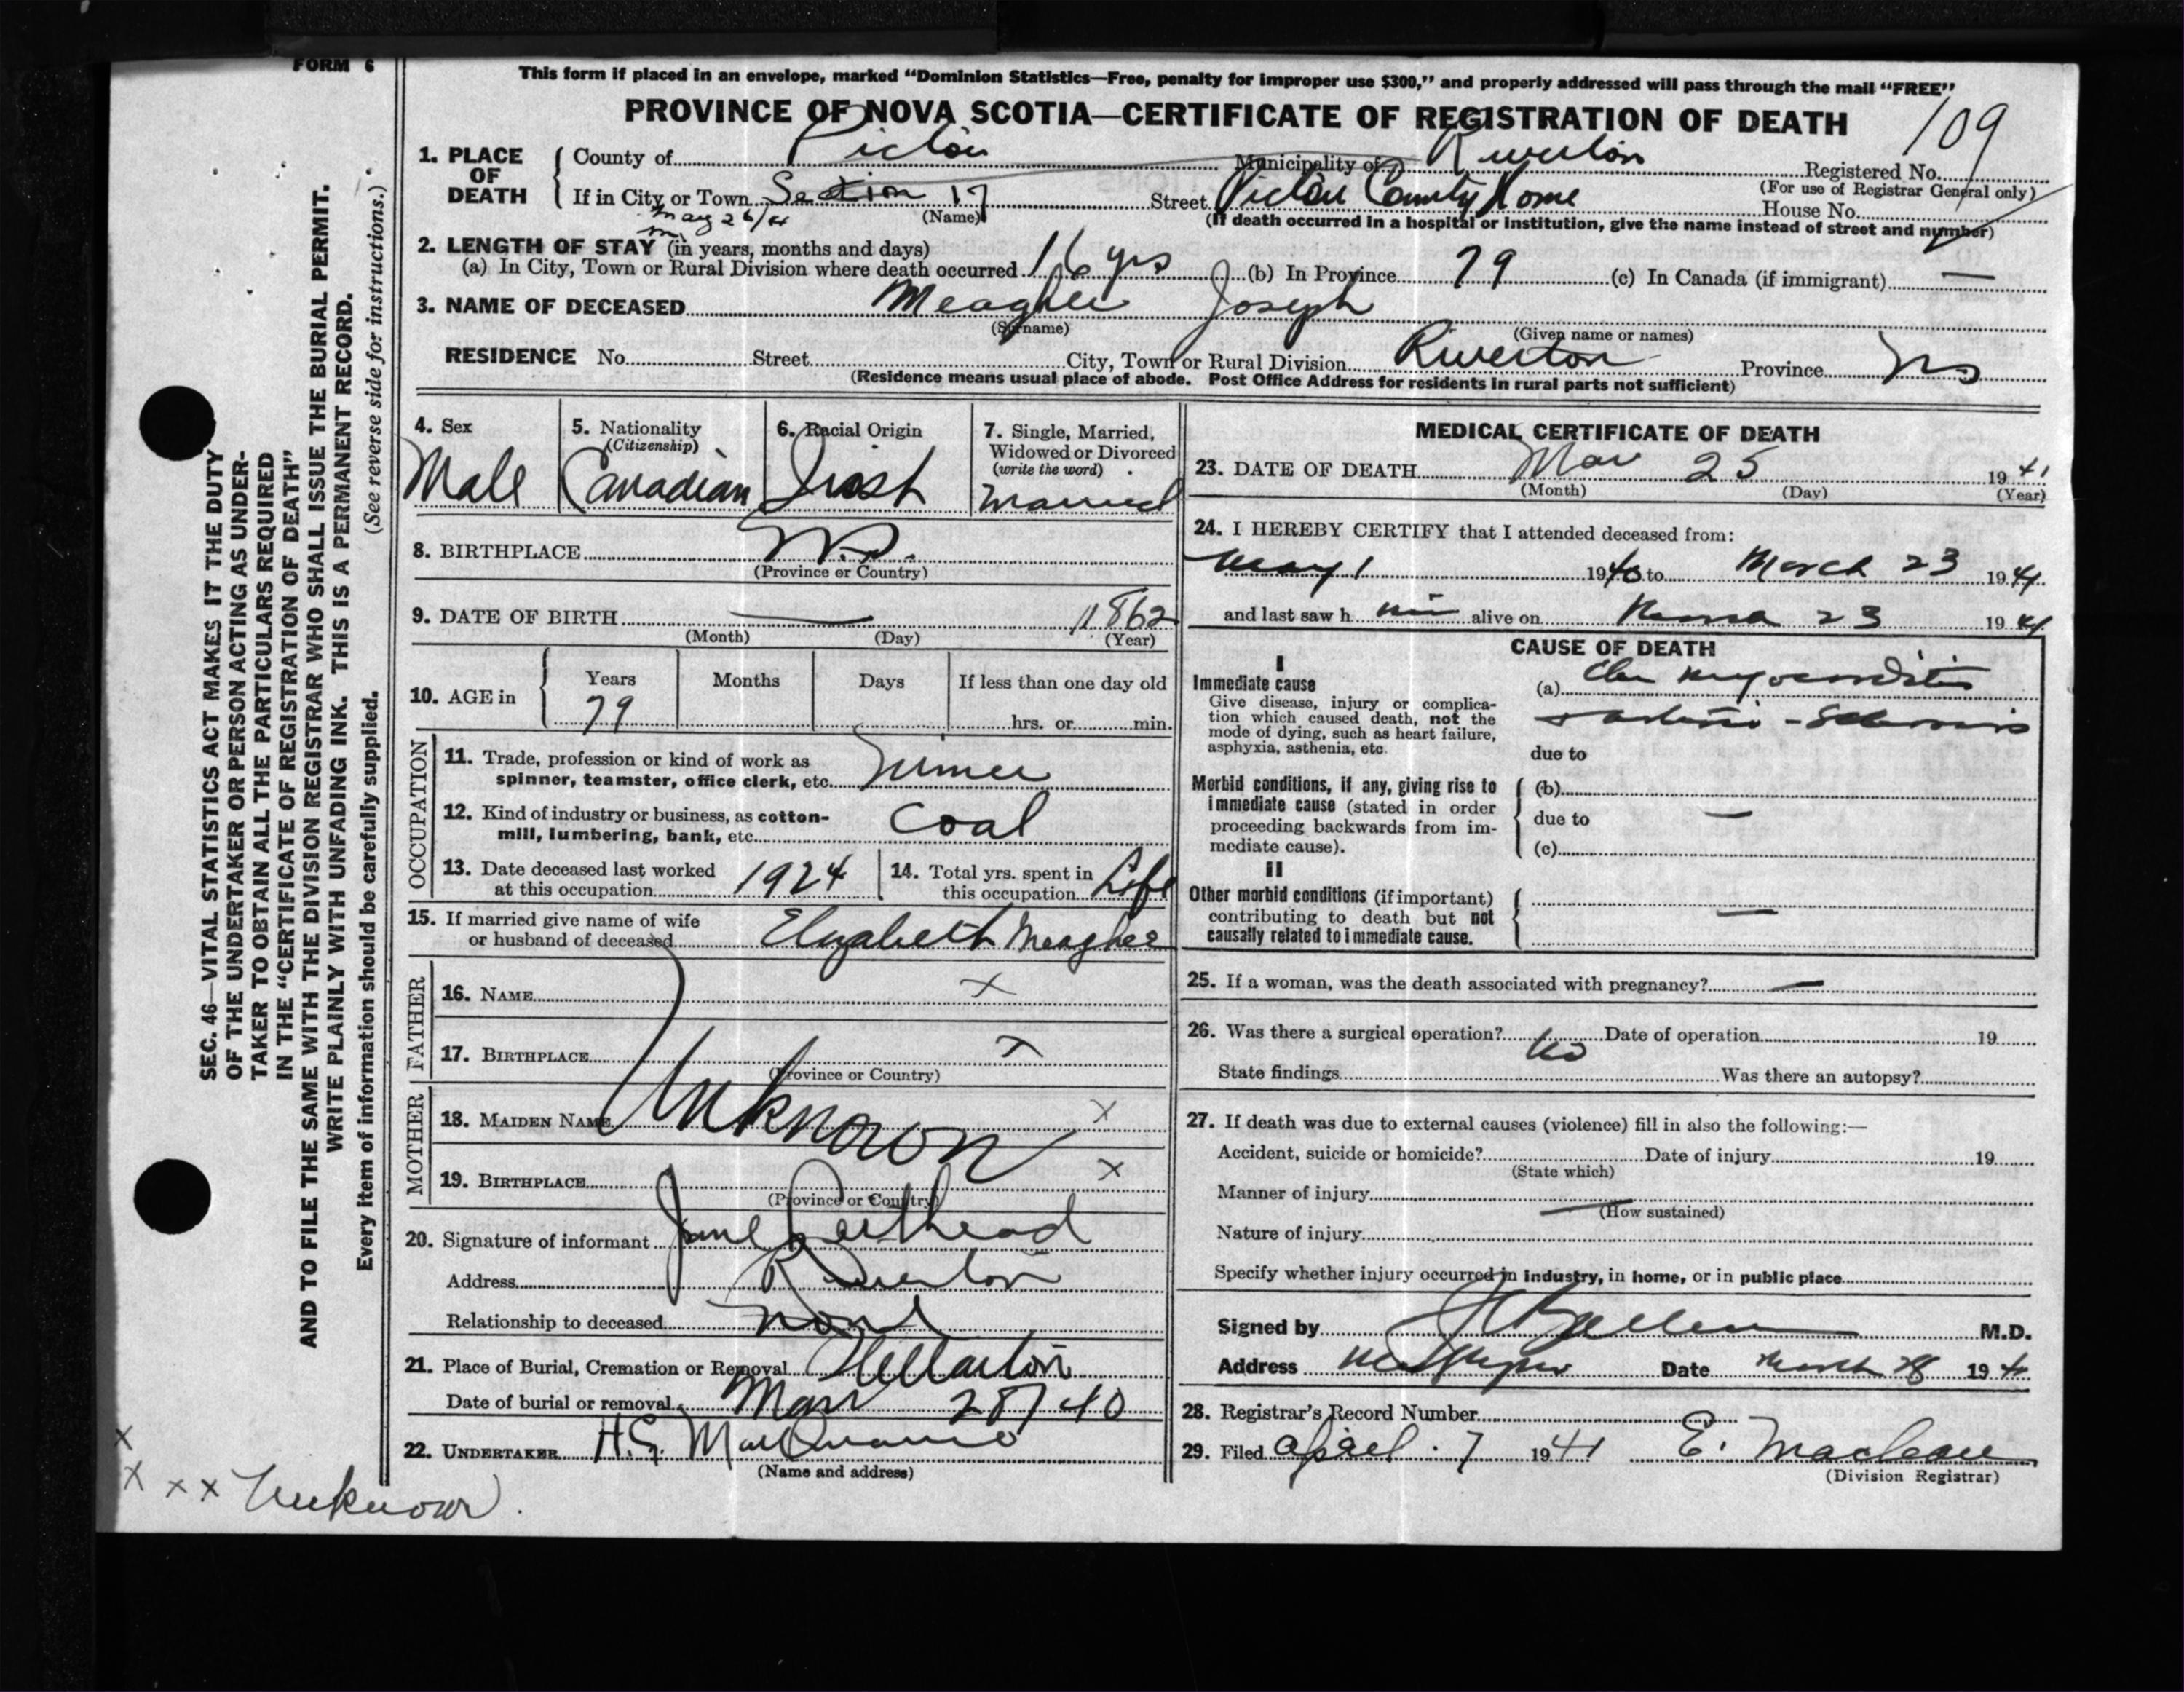 FORM 6
This form if placed in an envelope, marked “Dominion Statistics—Free, penalty for improper use $300,” and properly addressed will pass through the mail “FREE”
PROVINCE OF NOVA SCOTIA—CERTIFICATE OF REGISTRATION OF DEATH
109
1. PLACE OF DEATH
County of Pictou Municipality of Riverton Registered No.
(For use of Registrar General only)
If in City or Town Section 17 Street Pictou County Home House No.
(Name) (If death occurred in a hospital or institution, give the name instead of street and number)
2. LENGTH OF STAY (in years, months and days)
(a) In City, Town or Rural Division where death occurred 16 yrs (b) In Province 79 (c) In Canada (if immigrant) —
3. NAME OF DECEASED Meagher Joseph
(Surname) (Given name or names)
RESIDENCE No. Street City, Town or Rural Division Riverton Province NS
(Residence means usual place of abode. Post Office Address for residents in rural parts not sufficient)
4. Sex
Male
5. Nationality
(Citizenship)
Canadian
6. Racial Origin
Irish
7. Single, Married,
Widowed or Divorced
(write the word)
Married
8. BIRTHPLACE N.S.
(Province or Country)
9. DATE OF BIRTH — 1862
(Month) (Day) (Year)
10. AGE in
Years Months Days If less than one day old
79 hrs. or min.
OCCUPATION
11. Trade, profession or kind of work as
spinner, teamster, office clerk, etc.
12. Kind of industry or business, as cotton-
mill, lumbering, bank, etc. Coal
13. Date deceased last worked
at this occupation 1924
14. Total yrs. spent in
this occupation Life
15. If married give name of wife
or husband of deceased Elizabeth Meagher
FATHER
16. NAME x
17. BIRTHPLACE x
(Province or Country)
MOTHER
Unknown
18. MAIDEN NAME x
19. BIRTHPLACE x
(Province or Country)
20. Signature of informant Jane
Address Riverton
Relationship to deceased None
21. Place of Burial, Cremation or Removal Stellarton
Date of burial or removal Mar 28/40
22. UNDERTAKER H.G.
(Name and address)
MEDICAL CERTIFICATE OF DEATH
23. DATE OF DEATH Mar 25 1941
(Month) (Day) (Year)
24. I HEREBY CERTIFY that I attended deceased from:
May 1 1940 to March 23 1941
and last saw him alive on March 23 1941
CAUSE OF DEATH
I
Immediate cause
Give disease, injury or complica-
tion which caused death, not the
mode of dying, such as heart failure,
asphyxia, asthenia, etc.
(a) Myocarditis
due to
Morbid conditions, if any, giving rise to
immediate cause (stated in order
proceeding backwards from im-
mediate cause).
(b)
due to —
(c)
II
Other morbid conditions (if important)
contributing to death but not
causally related to immediate cause.
—
25. If a woman, was the death associated with pregnancy? —
26. Was there a surgical operation? no Date of operation 19
State findings Was there an autopsy?
27. If death was due to external causes (violence) fill in also the following:—
Accident, suicide or homicide? Date of injury 19
(State which)
Manner of injury
(How sustained)
Nature of injury
Specify whether injury occurred in industry, in home, or in public place
Signed by M.D.
Address Date March 28 1941
28. Registrar's Record Number
29. Filed April 7 1941 E. Maclean
(Division Registrar)
SEC. 46—VITAL STATISTICS ACT MAKES IT THE DUTY
OF THE UNDERTAKER OR PERSON ACTING AS UNDER-
TAKER TO OBTAIN ALL THE PARTICULARS REQUIRED
IN THE “CERTIFICATE OF REGISTRATION OF DEATH”
AND TO FILE THE SAME WITH THE DIVISION REGISTRAR WHO SHALL ISSUE THE BURIAL PERMIT.
WRITE PLAINLY WITH UNFADING INK. THIS IS A PERMANENT RECORD.
Every item of information should be carefully supplied. (See reverse side for instructions.)
x
x x x Unknown.